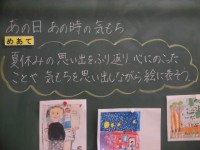 あの日 あの時の気もち
めあて
夏休みの思い出をふり返り、心にのこった
ことや 気もちを思い出しながら絵に表そう。